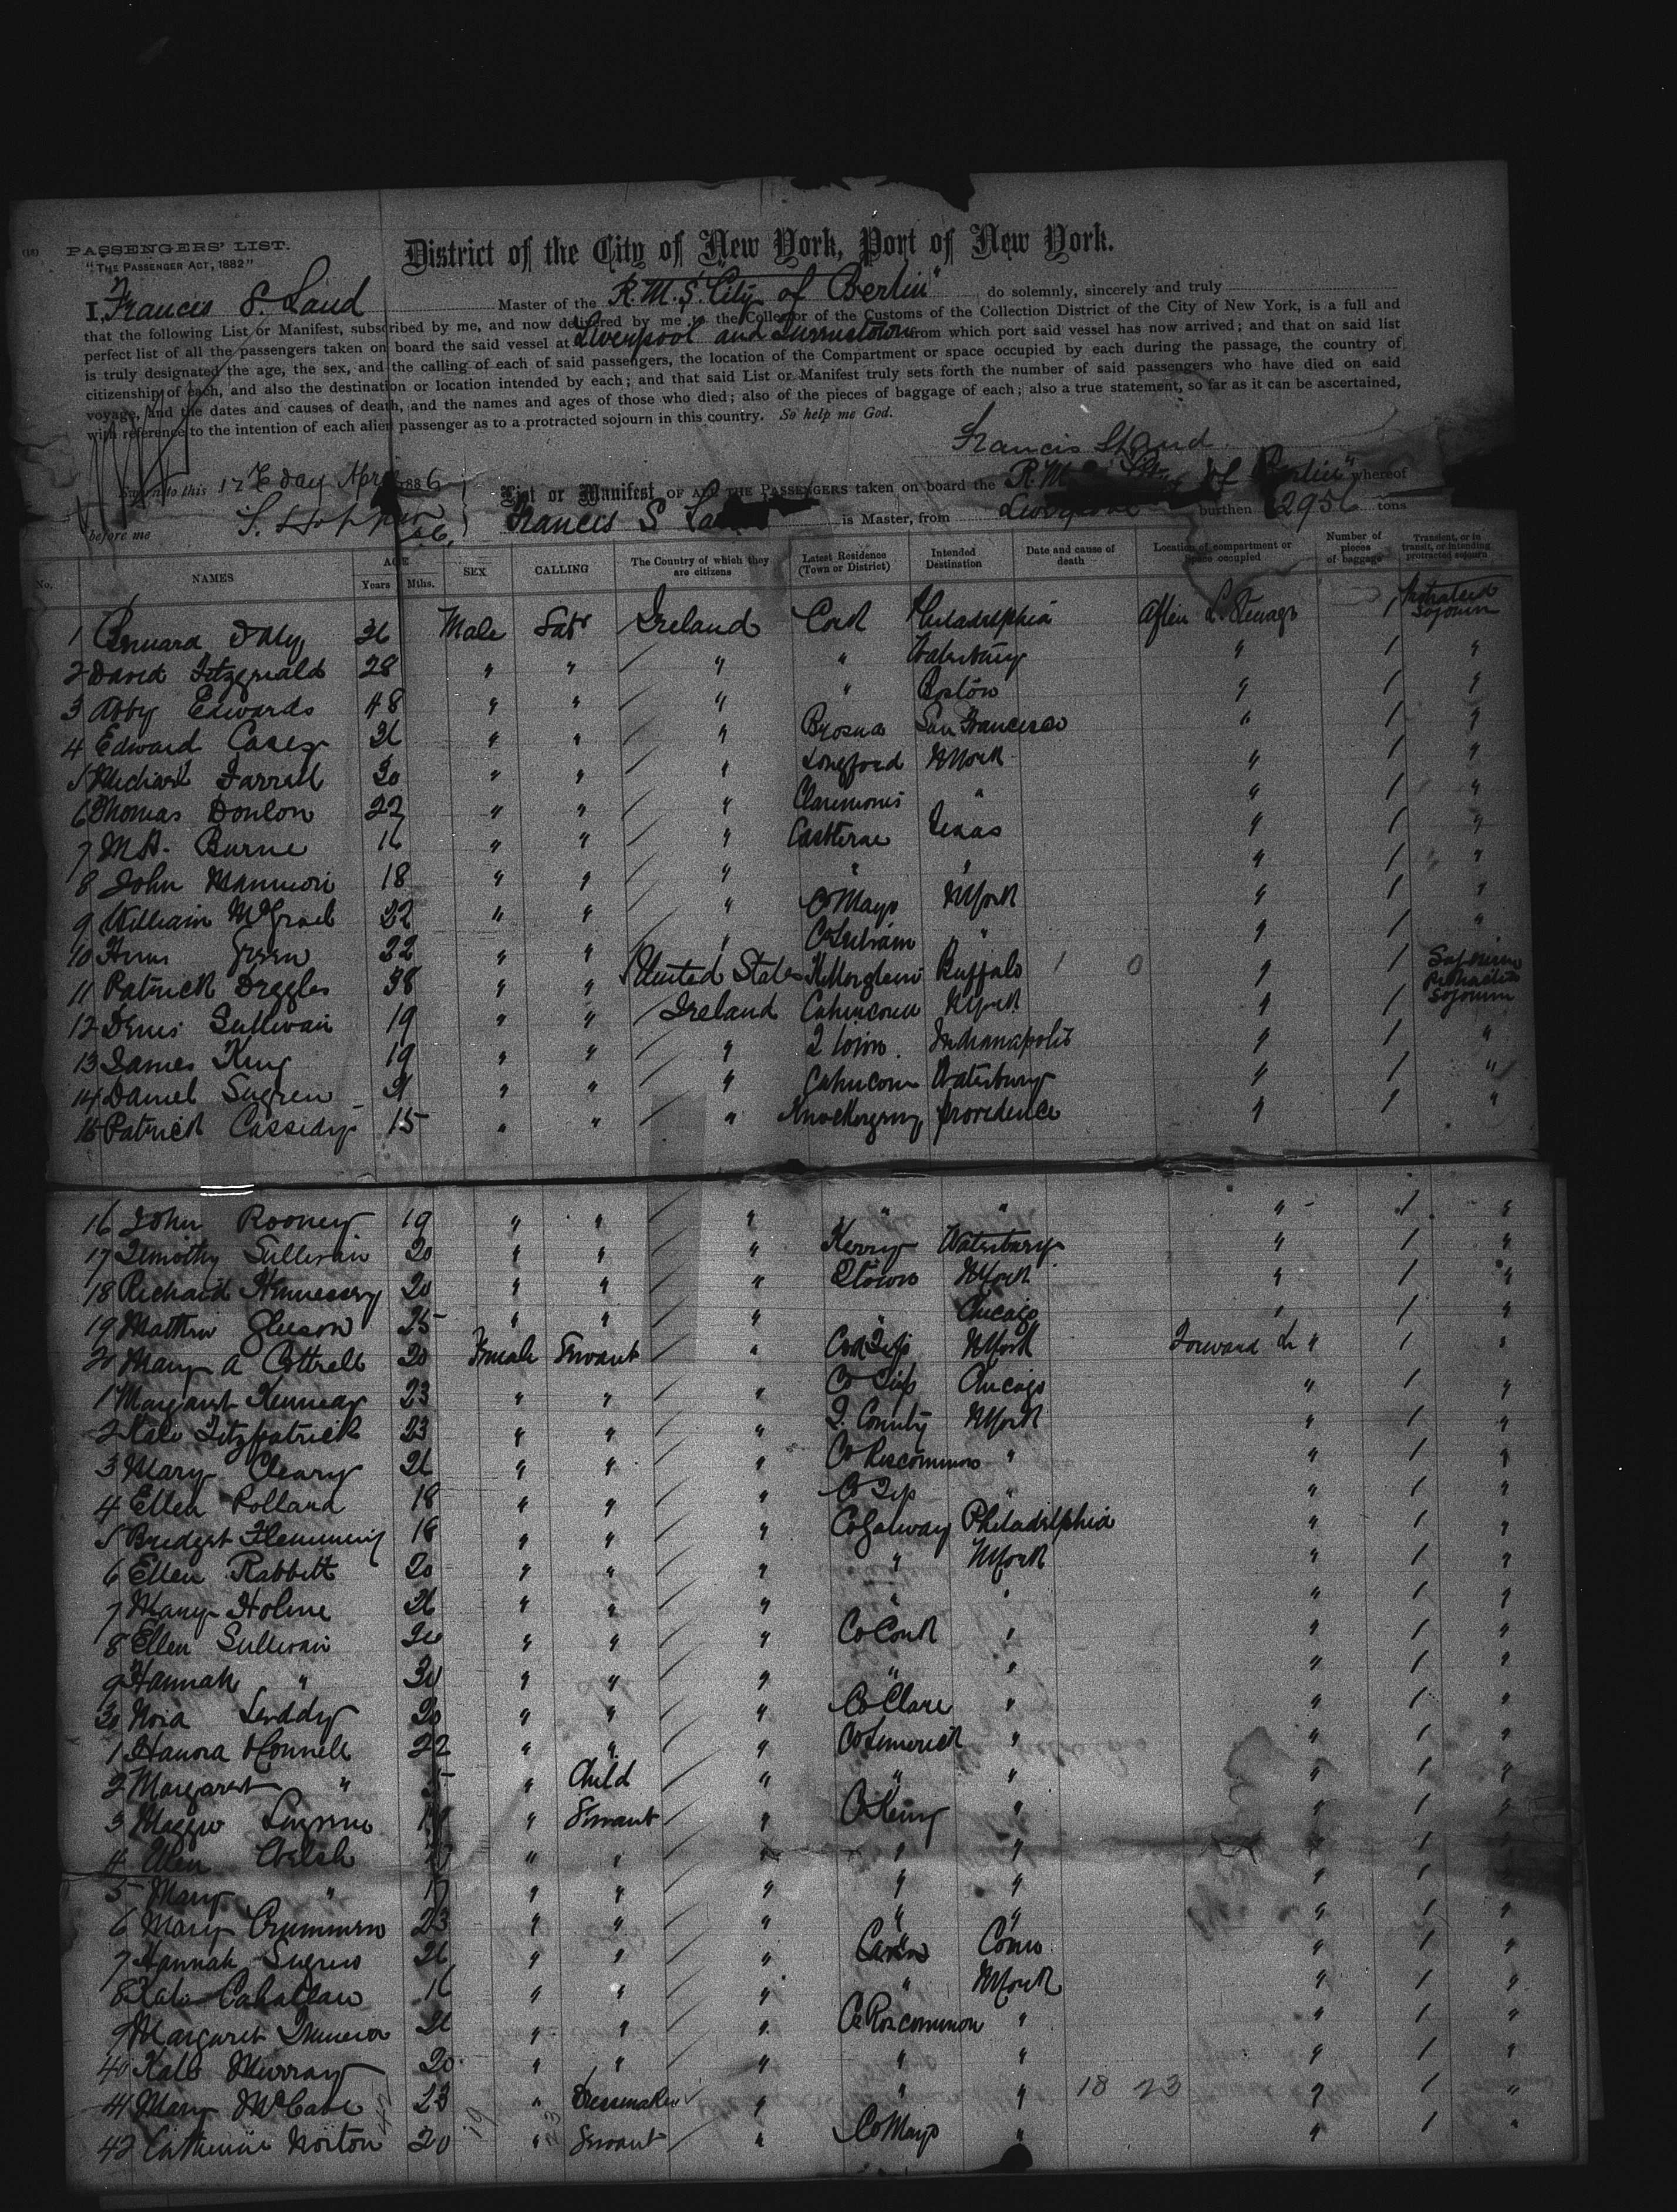 PASSENGERS' LIST.
"THE PASSENGER ACT, 1882"
District of the City of New York, Port of New York.
I, Francis S. Land Master of the R.M.S. "City of Berlin" do solemnly, sincerely and truly
that the following List or Manifest, subscribed by me, and now delivered by me to the Collector of the Customs of the Collection District of the City of New York, is a full and
perfect list of all the passengers taken on board the said vessel at Liverpool and Queenstown from which port said vessel has now arrived; and that on said list
is truly designated the age, the sex, and the calling of each of said passengers, the location of the Compartment or space occupied by each during the passage, the country of
citizenship of each, and also the destination or location intended by each; and that said List or Manifest truly sets forth the number of said passengers who have died on said
voyage, and the dates and causes of death, and the names and ages of those who died; also of the pieces of baggage of each; also a true statement, so far as it can be ascertained,
with reference to the intention of each alien passenger as to a protracted sojourn in this country. So help me God.
Francis S Land
Sworn to this 17 day April 1886
List or Manifest OF ALL THE PASSENGERS taken on board the R.M.S. City of Berlin" whereof
before me
Francis S Land is Master, from Liverpool burthen 2956 tons
No. NAMES AGE Years Mths. SEX CALLING The Country of which they are citizens Latest Residence (Town or District) Intended Destination Date and cause of death Location of compartment or space occupied Number of pieces of baggage Transient, or in transit, or intending protracted sojourn
1 Daly Male Labr Ireland Cork Philadelphia 1 Protracted Sojourn
2 David Fitzgerald 28 " " / " " Waterbury " 1 "
3 Abby Edwards 48 " " / " " Boston " 1 "
4 Edward Casey " " / " Brosna San Francisco " 1 "
5 Michael Farrell 30 " " / " Longford NYork " 1 "
6 Thomas Donlon 22 " " / " " " 1 "
7 Burne 16 " " / " Texas " 1 "
8 John 18 " " / " " " " 1 "
9 William 22 " " / " Co Mayo NYork " 1 "
10 Green 22 " " / " " " 1 "
11 Patrick 38 " " / United States Buffalo 1 0 " 1 Sojourn
12 Denis Sullivan 19 " " / Ireland NYork " 1 Protracted Sojourn
13 James King 19 " " / " Q town. Indianapolis " 1 "
14 Daniel Sugrew " " / " Waterbury " 1 "
15 Patrick Cassidy 15 " " / " providence " 1 "
16 John Rooney 19 " " / " " " " 1 "
17 Timothy Sullivan 20 " " / " Kerry Waterbury " 1 "
18 Richard Hennessey 20 " " / " Qtown NYork " 1 "
19 Matthew Gleeson 25 " " / " " Chicago " 1 "
20 Mary A Cottrell 20 Female Servant / " NYork Forward " 1 "
1 Margaret Kennedy 23 " " / " Co Tip Chicago " 1 "
2 Kate Fitzpatrick 23 " " / " Q. County NYork " 1 "
3 Mary Cleary " " / " Co Roscommon " " 1 "
4 Ellen Pollard 18 " " / " Co Tip " " 1 "
5 Bridget Flemming 18 " " / " Co Galway Philadelphia " 1 "
6 Ellen Rabbitt 20 " " / " " NYork " 1 "
7 Mary Holme " " / " " " " 1 "
8 Ellen Sullivan 20 " " / " Co Cork " " 1 "
9 Hannah " 30 " " / " " " " 1 "
30 Nora Leddy 20 " " / " Co Clare " " 1 "
1 Hanora OConnell 22 " " / " Co Limerick " " 1 "
2 Margaret " " Child / " " " " 1 "
3 Maggie " Servant / " Co Kerry " " 1 "
4 Welsh " " / " " " " 1 "
5 Mary " 17 " " / " " " " 1 "
6 Mary Crimmen 23 " " / " " " " 1 "
7 Hannah Sugrew " " / " Conn. " 1 "
8 Kate Callallan 16 " " / " " NYork " 1 "
9 Margaret " " / " Co Roscommon " " 1 "
40 Kate Murray 20 " " / " " " " 1 "
41 Mary McCabe 23 " Dressmaker / " " " 18 23 " 1 "
42 Catherine Norton 20 " Servant / " Co Mayo " " 1 "